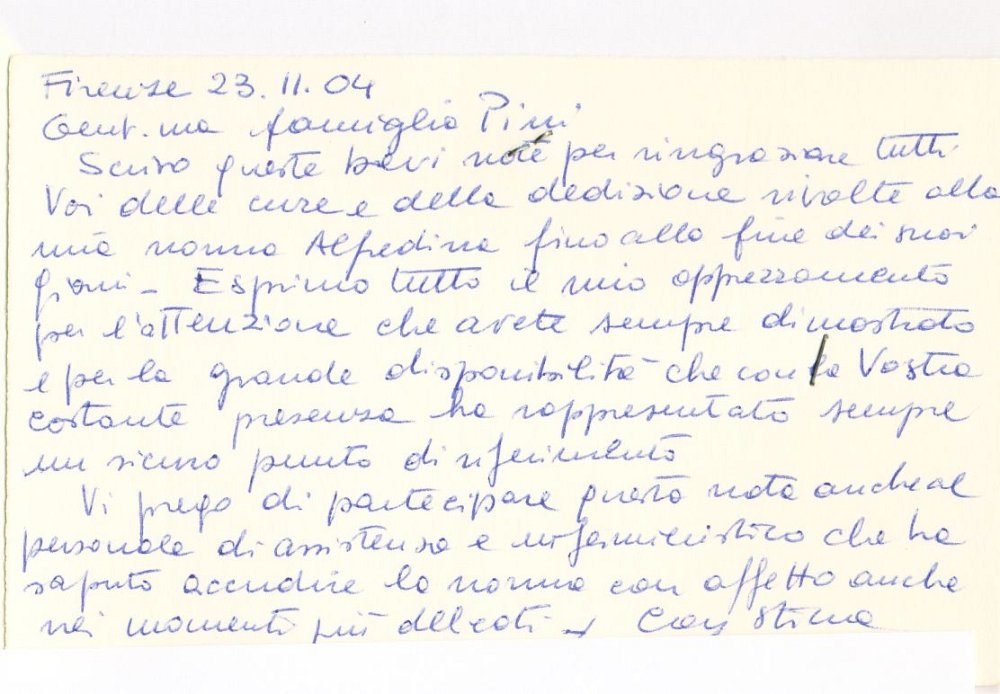 Firenze 23.11.04
Gent.ma famiglia Pini
Scrivo queste brevi note per ringraziare tutti
Voi delle cure e della dedizione rivolte alla
mia nonna Alfedina fino alla fine dei suoi
giorni - Esprimo tutto il mio apprezzamento
per l'attenzione che avete sempre dimostrato
e per la grande disponibilità che con la Vostra
costante presenza ha rappresentato sempre
un sicuro punto di riferimento
Vi prego di partecipare questa nota anche al
personale di assistenza e infermieristico che ha
saputo accudire la nonna con affetto anche
nei momenti più delicati - Con stima